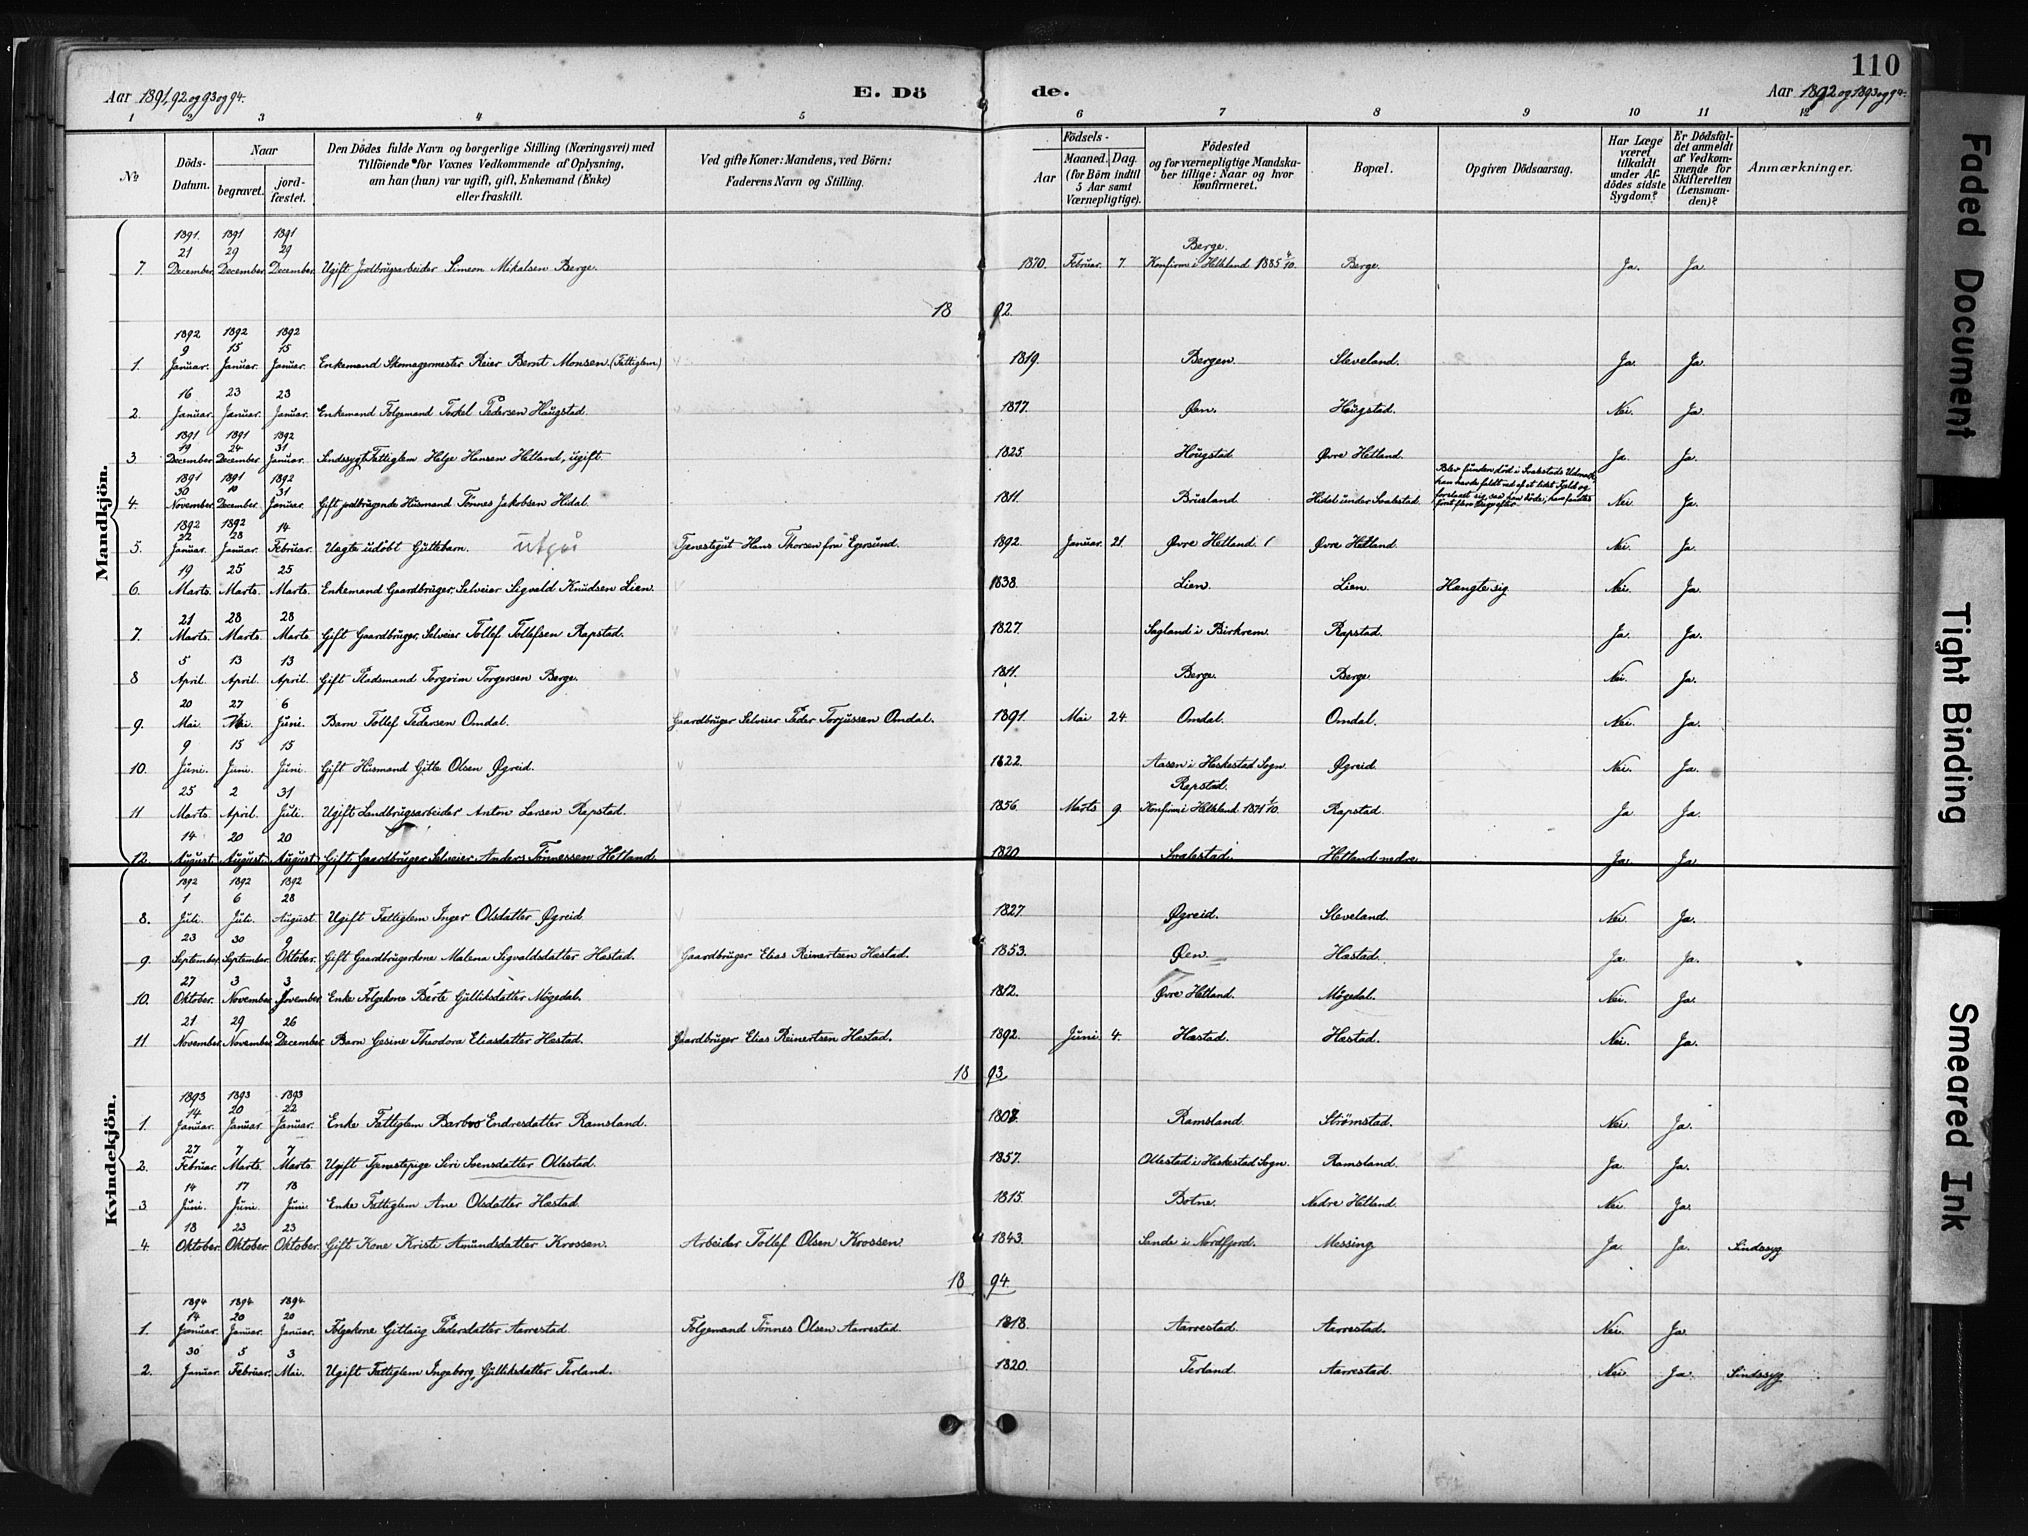 110
Aar 1891, 92 og 93 og 94.
E. Dö
de.
Aar 1892 og 1893 og 94.
1 2 3 4 5 6 7 8 9 10 11 12
No
Döds-Datum.
Naar
begravet.
jord-fæstet.
Den Dödes fulde Navn og borgerlige Stilling (Næringsvei) med
Tilföiende for Voxnes Vedkommende af Oplysning,
om han (hun) var ugift, gift, Enkemand (Enke)
eller fraskilt.
Ved gifte Koner: Mandens, ved Börn:
Faderens Navn og Stilling.
Födsels-
Aar
Maaned. Dag.
(for Börn indtil
5 Aar samt
Værnepligtige).
Födested
og for værnepligtige Mandska-
ber tillige: Naar og hvor
konfirmeret.
Bopæl.
Opgiven Dödsaarsag.
Har Læge
været
tilkaldt
under Af-
dödes sidste
Sygdom?
Er Dödsfal-
det anmeldt
af Vedkom-
mende for
Skifteretten
(Lensman-
den)?
Anmærkninger.
Mandkjön.
1891. 1891 1891
21 29 29
Berge.
7. December. December. December. Ugift Jordbrugsarbeider Simeon Mikalsen Berge. 1870. Februar. 7. Konfirm. i Helleland 1885 4/10. Berge. Ja. Ja.
18 92.
1892 1892 1892
9 15 15
1. Januar. Januar. Januar. Enkemand Skomagermester Reier Bernt Monsen. (Fattiglem) 1819. Bergen. Sleveland. Ja. Ja.
16 23 23
2. Januar. Januar. Januar. Enkemand Folgemand Torkel Pedersen Haugstad. 1817. Øen. Haugstad. Nei. Ja.
1891 1891 1892
19 24 31
3 December December Januar. Sindssyg Fattiglem Helje Hansen Hetland, ugift. 1825. Hougstad Øvre Hetland. Ja. Ja.
1891 1891 1892
30 10 31
4. November. December. Januar. Gift jordbrugende Husmand Tønnes Jakobsen Hidal. 1811. Brusland. Hidal under Svalestad. Blev funden död i Svalestads Udmark; Nei. Ja.
1892 1892 14
22 28
5. Januar. Januar. Februar. Uægte udöbt Guttebarn. utgår Tjenestegut Hans Thorsen fra Egersund. 1892. Januar. 21. Øvre Hetland. Øvre Hetland. Nei. Ja.
19 25 25
6. Marts. Marts. Marts. Enkemand Gaardbruger, Selveier Sigvald Knudsen Lien. 1838. Lien. Lien. Hængte sig. Nei. Ja.
21 28 28
7. Marts. Marts. Marts Gift Gaardbruger, Selveier Tollef Tollefsen Rapstad. 1827. Sagland i Birkrem. Rapstad. Ja. Ja.
5 13 13
8 April. April. April. Gift Pladsmand Torgrim Torgersen Berge. 1811. Berge. Berge. Nei. Ja.
20 27 6
9. Mai. Mai. Juni. Barn Tollef Pedersen Omdal. Gaardbruger Selveier Peder Torjussen Omdal. 1891. Mai 24. Omdal. Omdal. Nei. Ja.
9 15 15
10. Juni. Juni. Juni. Gift Husmand Gitle Olsen Øgreid. 1822. Aasen i Heskestad Sogn. Øgreid. Nei. Ja.
25 2 31
Rapstad.
11 Marts. April. Juli. Ugift Landbrugsarbeider Anton Larsen Rapstad. 1856. Marts 9. Konfirm. i Helleland 1871 1/10. Rapstad. Ja. Ja.
14 20 20
12. August August August Gift Gaardbruger Selveier Anders Tønnessen Hetland. 1820. Svalestad. Hetland nedre. Ja. Ja.
Kvindekjön.
1892 1892 1892
1 6 28
8. Juli. Juli. August. Ugift Fattiglem Inger Olsdatter Øgreid 1827. Øgreid. Sleveland. Nei. Ja.
23 30 9
9. September. September. Oktober. Gift Gaardbrugerkone Malena Sigvaldsdatter Hæstad. Gaardbruger Elias Reinertsen Hæstad. 1853. Øen. Hæstad. Ja. Ja.
27 3 3
10. Oktober. November. November. Enke Folgekone Berte Gulliksdatter Mögedal. 1812. Øvre Hetland. Mögedal. Nei. Ja.
21 29 26
11 November. November. December. Barn Gesine Theodora Eliasdatter Hæstad. Gaardbruger Elias Reinertsen Hæstad. 1892. Juni 4. Hæstad. Hæstad. Nei. Ja.
18 93
1893 1893 1893
14 20 22
1. Januar. Januar. Januar. Enke Fattiglem Barbro Endresdatter Ramsland. 1808. Ramsland. Strømstad. Nei. Ja.
27 7 7
2. Februar. Marts. Marts. Ugift Tjenestepige Siri Svensdatter Ollestad. 1857. Ollestad i Heskestad Sogn. Ramsland. Ja. Ja.
14 17 18
3 Juni. Juni. Juni. Enke Fattiglem Ane Olsdatter Hæstad. 1815. Botne. Nedre Hetland. Nei. Ja.
18 23 23
4. Oktober. Oktober. Oktober. Gift Kone Kristi Amundsdatter Krossen. Arbeider Tollef Olsen Krossen 1843. Sande i Nordfjord. Messing. Ja. Ja. Sindssyg
18 94
1894 1894 1894
14 20 20
1. Januar. Januar. Januar. Folgekone Gitlaug Pedersdatter Aarrestad. Folgemand Tønnes Olsen Aarrestad. 1818. Aarrestad. Aarrestad. Nei. Ja.
30 5 3
2. Januar. Februar. Mai. Ugift Fattiglem Ingeborg Gulliksdatter Terland. 1820. Terland. Aarrestad. Nei. Ja. Sindssyg
Faded Document
Tight Binding
Smeared Ink